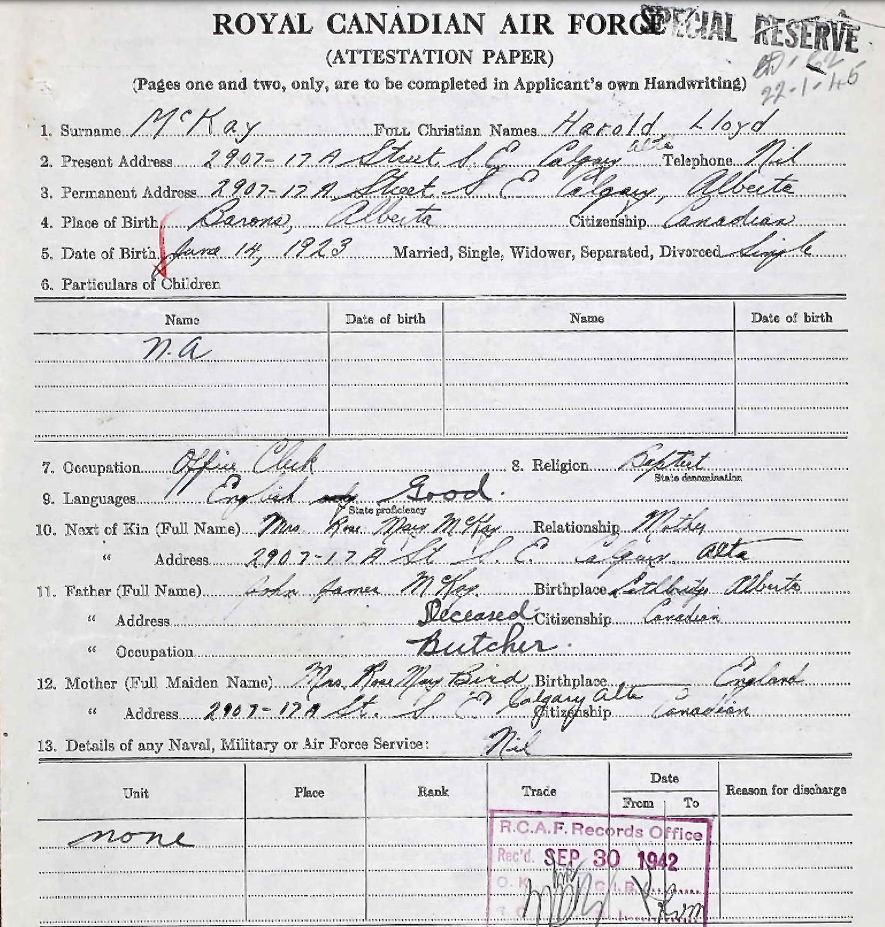 ROYAL CANADIAN AIR FORCE
SPECIAL RESERVE
(ATTESTATION PAPER)
(Pages one and two, only, are to be completed in Applicant's own Handwriting)
22-1-45
1. Surname McKay Full Christian Names Harold Lloyd
2. Present Address 2907-17A Street S.E. Calgary Alta Telephone Nil
3. Permanent Address 2907-17A Street S E Calgary, Alberta
4. Place of Birth Barons, Alberta Citizenship Canadian
5. Date of Birth June 14, 1923 Married, Single, Widower, Separated, Divorced Single
6. Particulars of Children
Name Date of birth Name Date of birth
N.A
7. Occupation Office Clerk 8. Religion Baptist
State denomination
9. Languages English Good.
State proficiency
10. Next of Kin (Full Name) Mrs. Rose May McKay Relationship Mother
" Address 2907-17A St S.E. Calgary Alta
11. Father (Full Name) John James McKay Birthplace Lethbridge Alberta
" Address Deceased Citizenship Canadian
" Occupation Butcher.
12. Mother (Full Maiden Name) Mrs. Rose May Bird Birthplace England
" Address 2907-17A St. S E Calgary Alta Citizenship Canadian
13. Details of any Naval, Military or Air Force Service: Nil
Unit Place Rank Trade Date Reason for discharge
From To
none
R.C.A.F. Records Office
Rec'd. SEP 30 1942